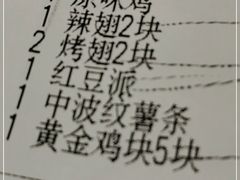 味鸡
1 辣翅2块
2 烤翅2块
1 红豆派
1 中波纹薯条
1 黄金鸡块5块